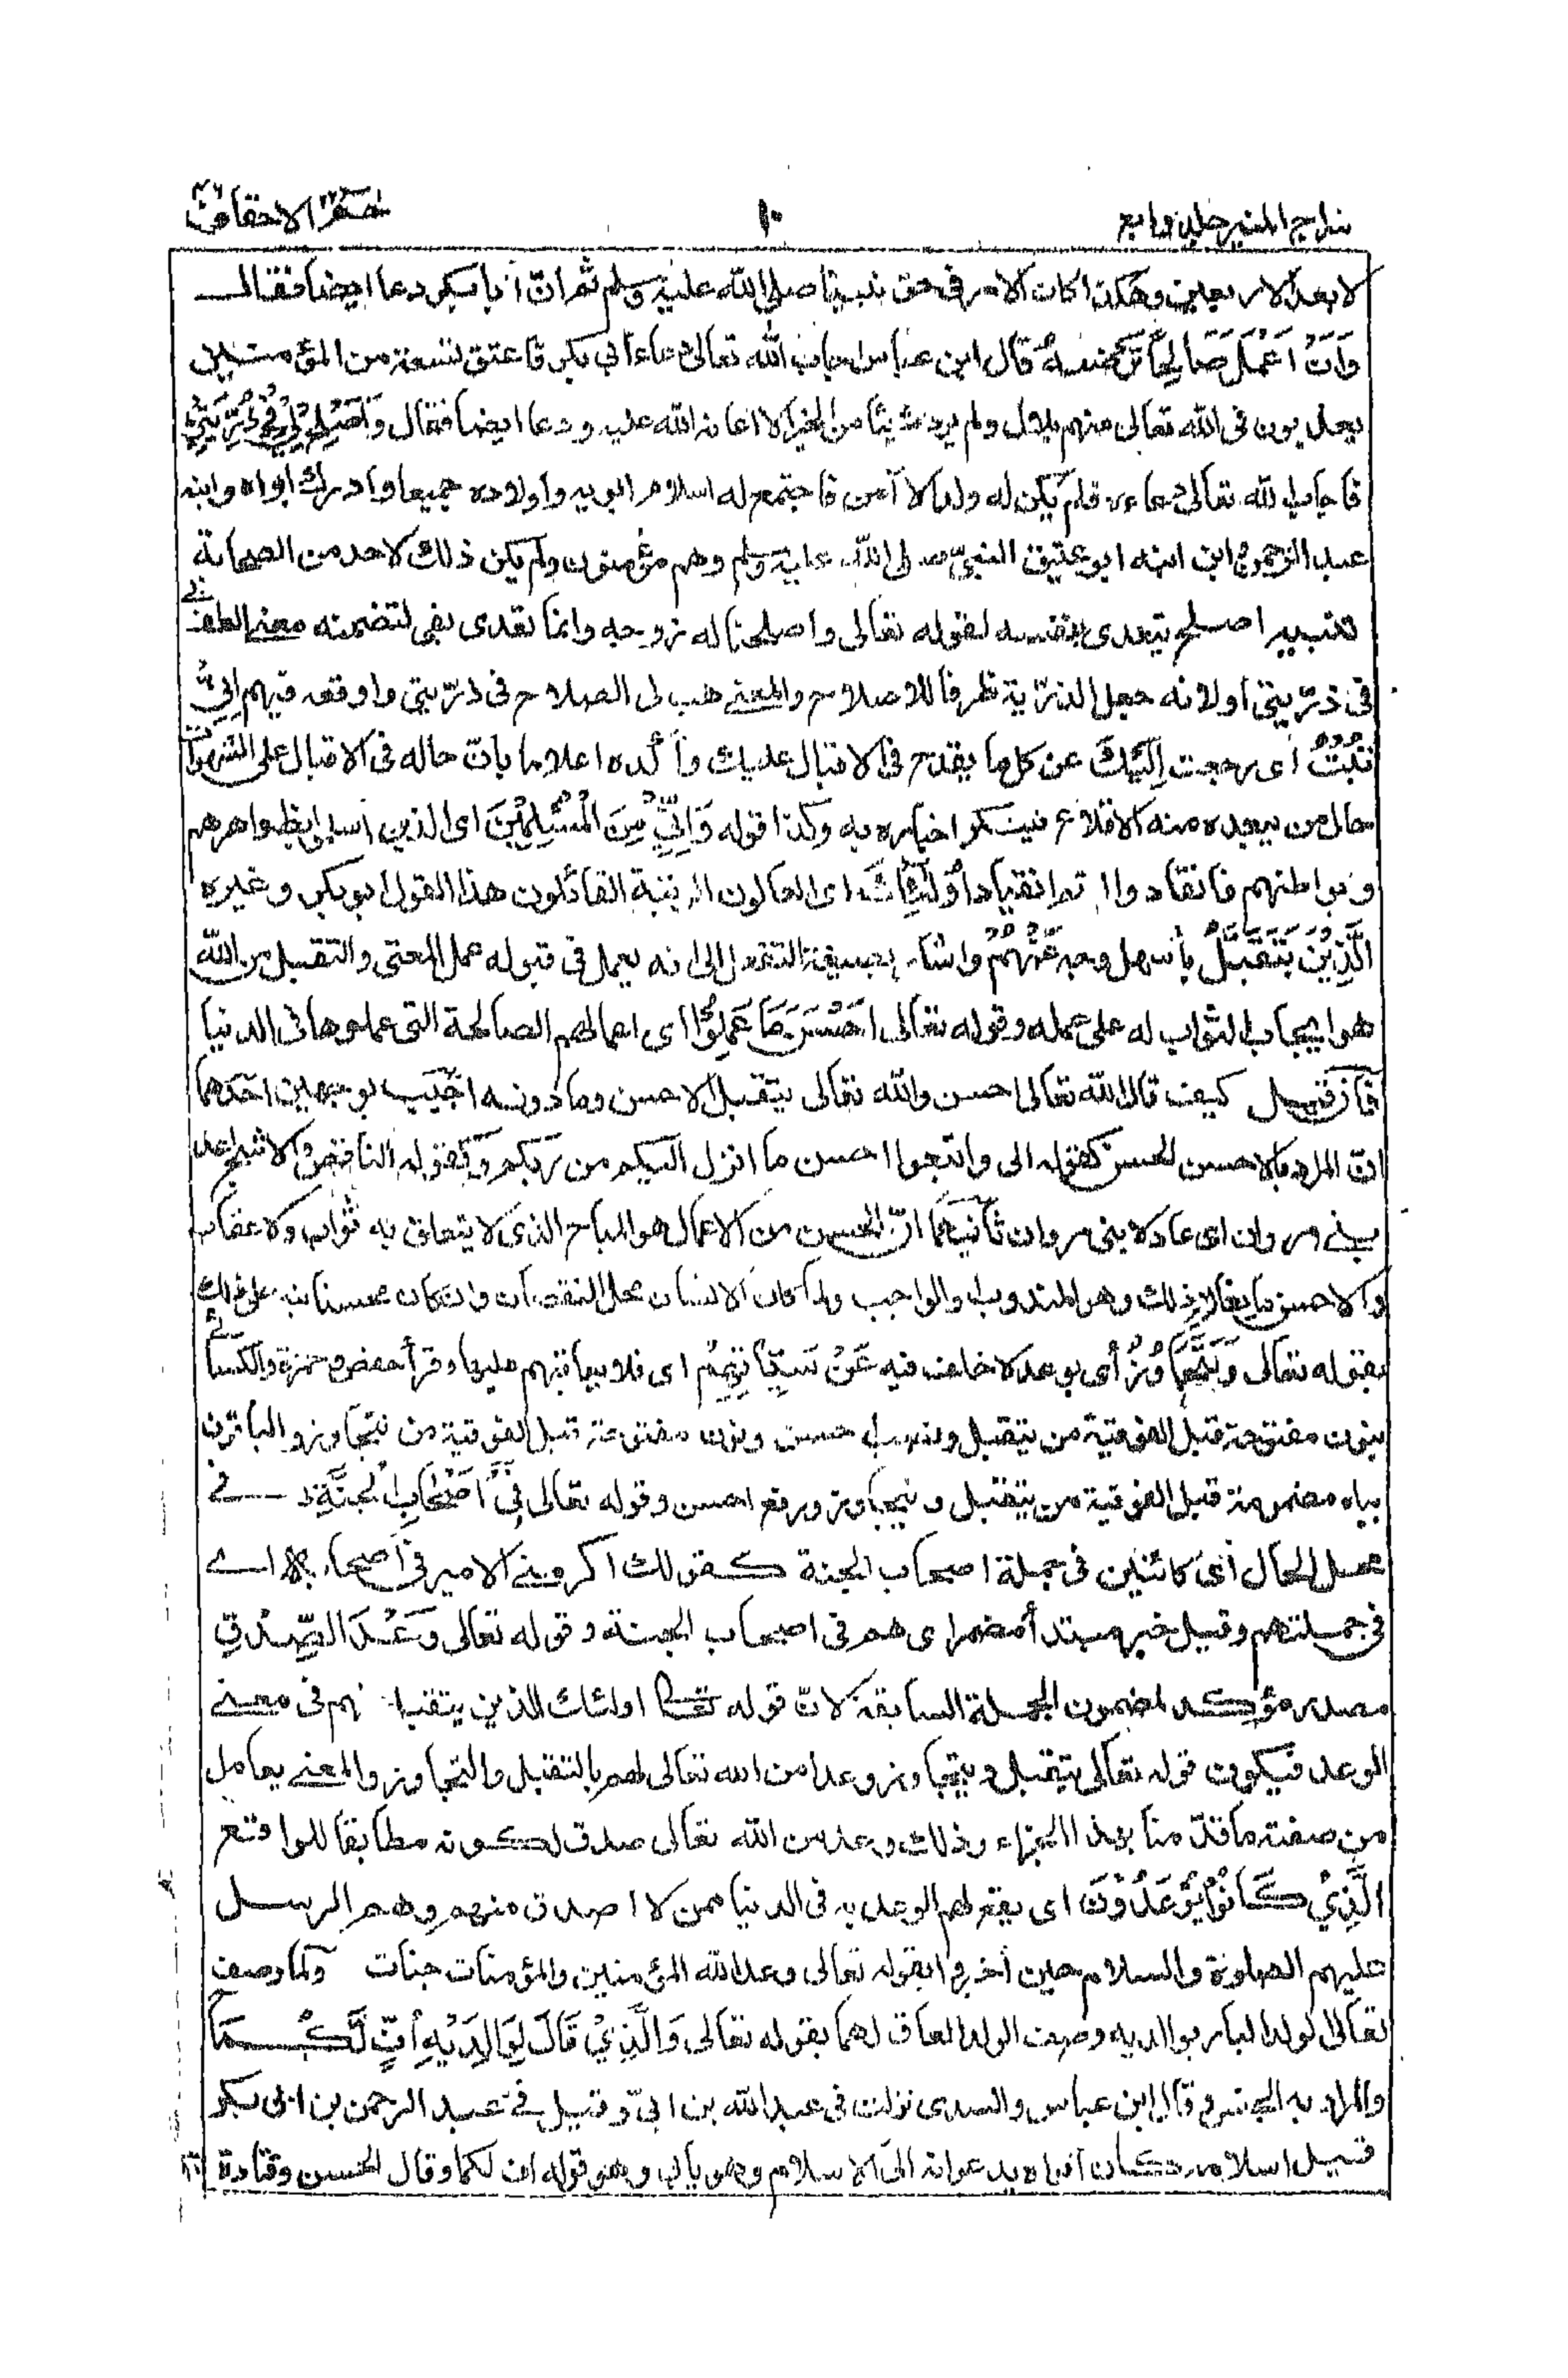 سراج المنير جلد رابع ١٠ حم الاحقاف ٤٦
لا بعد الاربعين وهكذا كان الامر فى حق نبينا صلى الله عليه وسلم ثم ان أبا بكر دعا ايضا فقال
وَاَنْ اَعْمَلَ صَالِحًا تَرْضٰىهُ قال ابن عباس اجاب الله تعالى دعاء أبي بكر فاعتق تسعة من المؤمنين
يعذبون فى الله تعالى منهم بلال ولم يرد شيئا من الخير الا اعانه الله عليه ودعا ايضا فقال وَاَصْلِحْ لِيْ فِيْ ذُرِّيَّتِيْ
فاجاب الله تعالى دعاءه فلم يكن له ولد الا آمن فاجتمع له اسلام ابويه واولاده جميعا وادرك ابواه وابنه
عبد الرحمن وابن ابنه ابو عتيق النبيّ صلى الله عليه وسلم وهم مؤمنون ولم يكن ذلك لاحد من الصحابة
تنبيه اصلح يتعدى بنفسه لقوله تعالى واصلحنا له زوجه وانما تعدى بفي لتضمنه معنى الطف بي
فى ذرّيتى أو لانه جعل الذرّية ظرفا للاصلاح والمعنى هب لى الصلاح فى ذرّيتى واوقعه فيهم اِنِّيْ
تُبْتُ أى رجعت اِلَيْكَ عن كل ما يقدح فى الاقبال عليك وأكّده اعلاما بأن حاله فى الاقبال على الشهوات
حال من يبعد منه الاقلاع فينكر اخباره به وكذا قوله وَاِنِّيْ مِنَ الْمُسْلِمِيْنَ اى الذين اسلموا بظواهرهم
وبواطنهم فانقادوا اتم انقياد اُولٰٓئِكَ اى العالون الرتبة القائلون هذا القول ابو بكر وغيره
الَّذِيْنَ يُتَقَبَّلُ بأسهل وجه عَنْهُمْ واشار بصيغة التفعل الى انه يعمل فى قبوله عمل المعتنى والتقبل من الله
هو ايجاب الثواب له على عمله وقوله تعالى اَحْسَنُ مَا عَمِلُوْا اى اعمالهم الصالحة التى عملوها فى الدنيا
فان قيل كيف قال الله تعالى احسن والله تعالى يتقبل الاحسن وما دونه اجيب بوجهين احدهما
انّ المراد بالاحسن الحسن كقوله تعالى واتبعوا احسن ما انزل اليكم من ربكم وكقوله الناقص والاشج اعدلا
بني مروان اى عادلا بنى مروان ثانيهما انّ الحسن من الاعمال هو المباح الذى لا يتعلق به ثواب ولا عقاب
والاحسن ما يغاير ذلك وهو المندوب والواجب ولما كان الانسان محل النقصان وان كان محسنا نبه على ذلك
بقوله تعالى وَيُتَجَاوَزُ أى بوعد لا خلف فيه عَنْ سَيِّاٰتِهِمْ اى فلا يعاقبهم عليها وقرأ حفص وحمزة والكسائي
بنون مفتوحة قبل الفوقية من يتقبل ونصب احسن ونون مفتوحة قبل الفوقية من نتجاوز والباقون
بياء مضمومة قبل الفوقية من يتقبل ويتجاوز ورفع احسن وقوله تعالى فِيْٓ اَصْحٰبِ الْجَنَّةِ فى
محل الحال أى كائنين فى جملة اصحاب الجنة كقولك اكرمنى الامير فى أصحابه اى
فى جملتهم وقيل خبر مبتدأ مضمر اى هم فى اصحاب الجنة وقوله تعالى وَعْدَ الصِّدْقِ
مصدر مؤكد لمضمون الجملة السابقة لانّ قوله تعالى اولئك الذين يتقبل عنهم فى معنى
الوعد فيكون قوله تعالى يتقبل ويتجاوز وعدا من الله تعالى لهم بالتقبل والتجاوز والمعنى يعامل
من صفته ما قدّمنا بهذا الجزاء وذلك وعد من الله تعالى صدق لكونه مطابقا للواقع
الَّذِيْ كَانُوْا يُوْعَدُوْنَ اى يقع لهم الوعد به فى الدنيا ممن لا اصدق منهم وهم الرسل
عليهم الصلوة والسلام حين أخبروا بقوله تعالى وعد الله المؤمنين والمؤمنات جنات ولما وصف
تعالى الولد البار بوالديه وصف الولد العاق لهما بقوله تعالى وَالَّذِيْ قَالَ لِوَالِدَيْهِ اُفٍّ لَّكُمَا
والمراد به الجنس قال ابن عباس والسدى نزلت فى عبد الله بن ابيّ وقيل فى عبد الرحمن بن ابى بكر
قبل اسلامه كان أبواه يدعوانه الى الاسلام وهو يأبى وهو قوله اف لكما وقال الحسن وقتادة